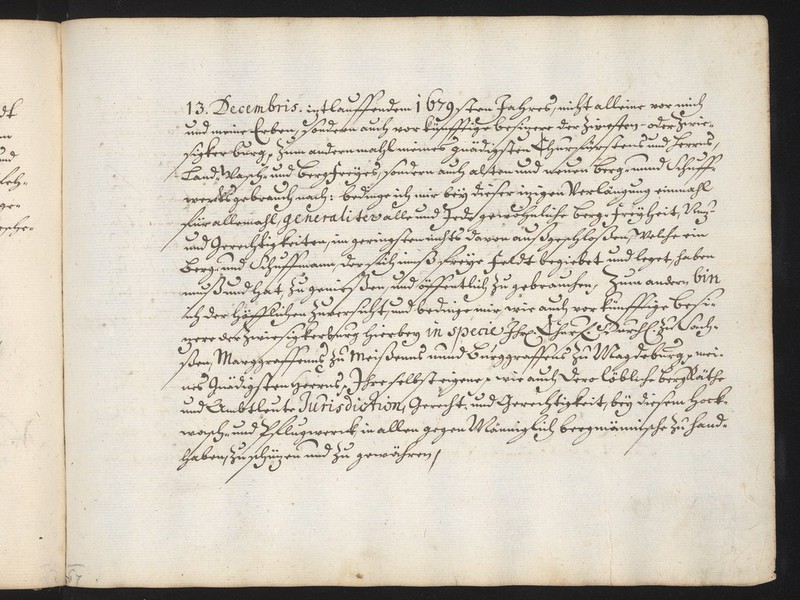 13. Decembris. itzt lauffendem 1679sten Jahres, nicht alleine vor mich
und meine Erben, sondern auch vor künfftige besitzere der Zwesten- oder Zwie-
sigker burg, Zum andern mahl meines gnädigsten Churfürstens und Herrns,
Land, Wasch- und Bergfreyes, sondern auch alten und neuen Berg- unnd Schuff-
wercks gebrauch nach: bedinge ich mir bey dieser itzigen Verlängung einmahl
für allemahl, generaliter alle und Jede gewöhnliche berg-freyheit, Nutz-
und Gerechtigkeiten, im geringsten nichts davon außgeschloßen, welche ein
Berg- und Schuffmann, der sich ins freye Feldt begiebet und leget, haben
muß und hat, Zu genießen, und öffentlich Zu gebrauchen, Zum andern, bin
ich der höfflichen Zuversicht, und bedinge mir, wie auch vor künfftige besi-
tzere der Zwiesigkerburg hierbey in specie, Ihr. Churf. Durchl. Zu Sach-
ßen, Marggraffenns Zu Meißenns unnd Burggraffens Zu Magdeburg, mei-
nes Gnädigsten Herrns, Ihre selbst eigene, wie auch Dero löbliche bergRäthe
und Ambtleute Jurisdiction, Gerecht- und Gerechtigkeit, bey diesem
wasch- und Pfllugwerck in allen gegen Männiglich bergmännische Zu hand-
haben, Zu schützen und Zu gewähren,